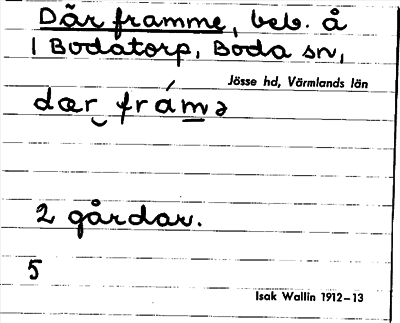 Där framme, beb. å
1 Bodatorp, Boda sn,
Jösse hd, Värmlands län
dær framə
2 gårdar.
5
Isak Wallin 1912–13